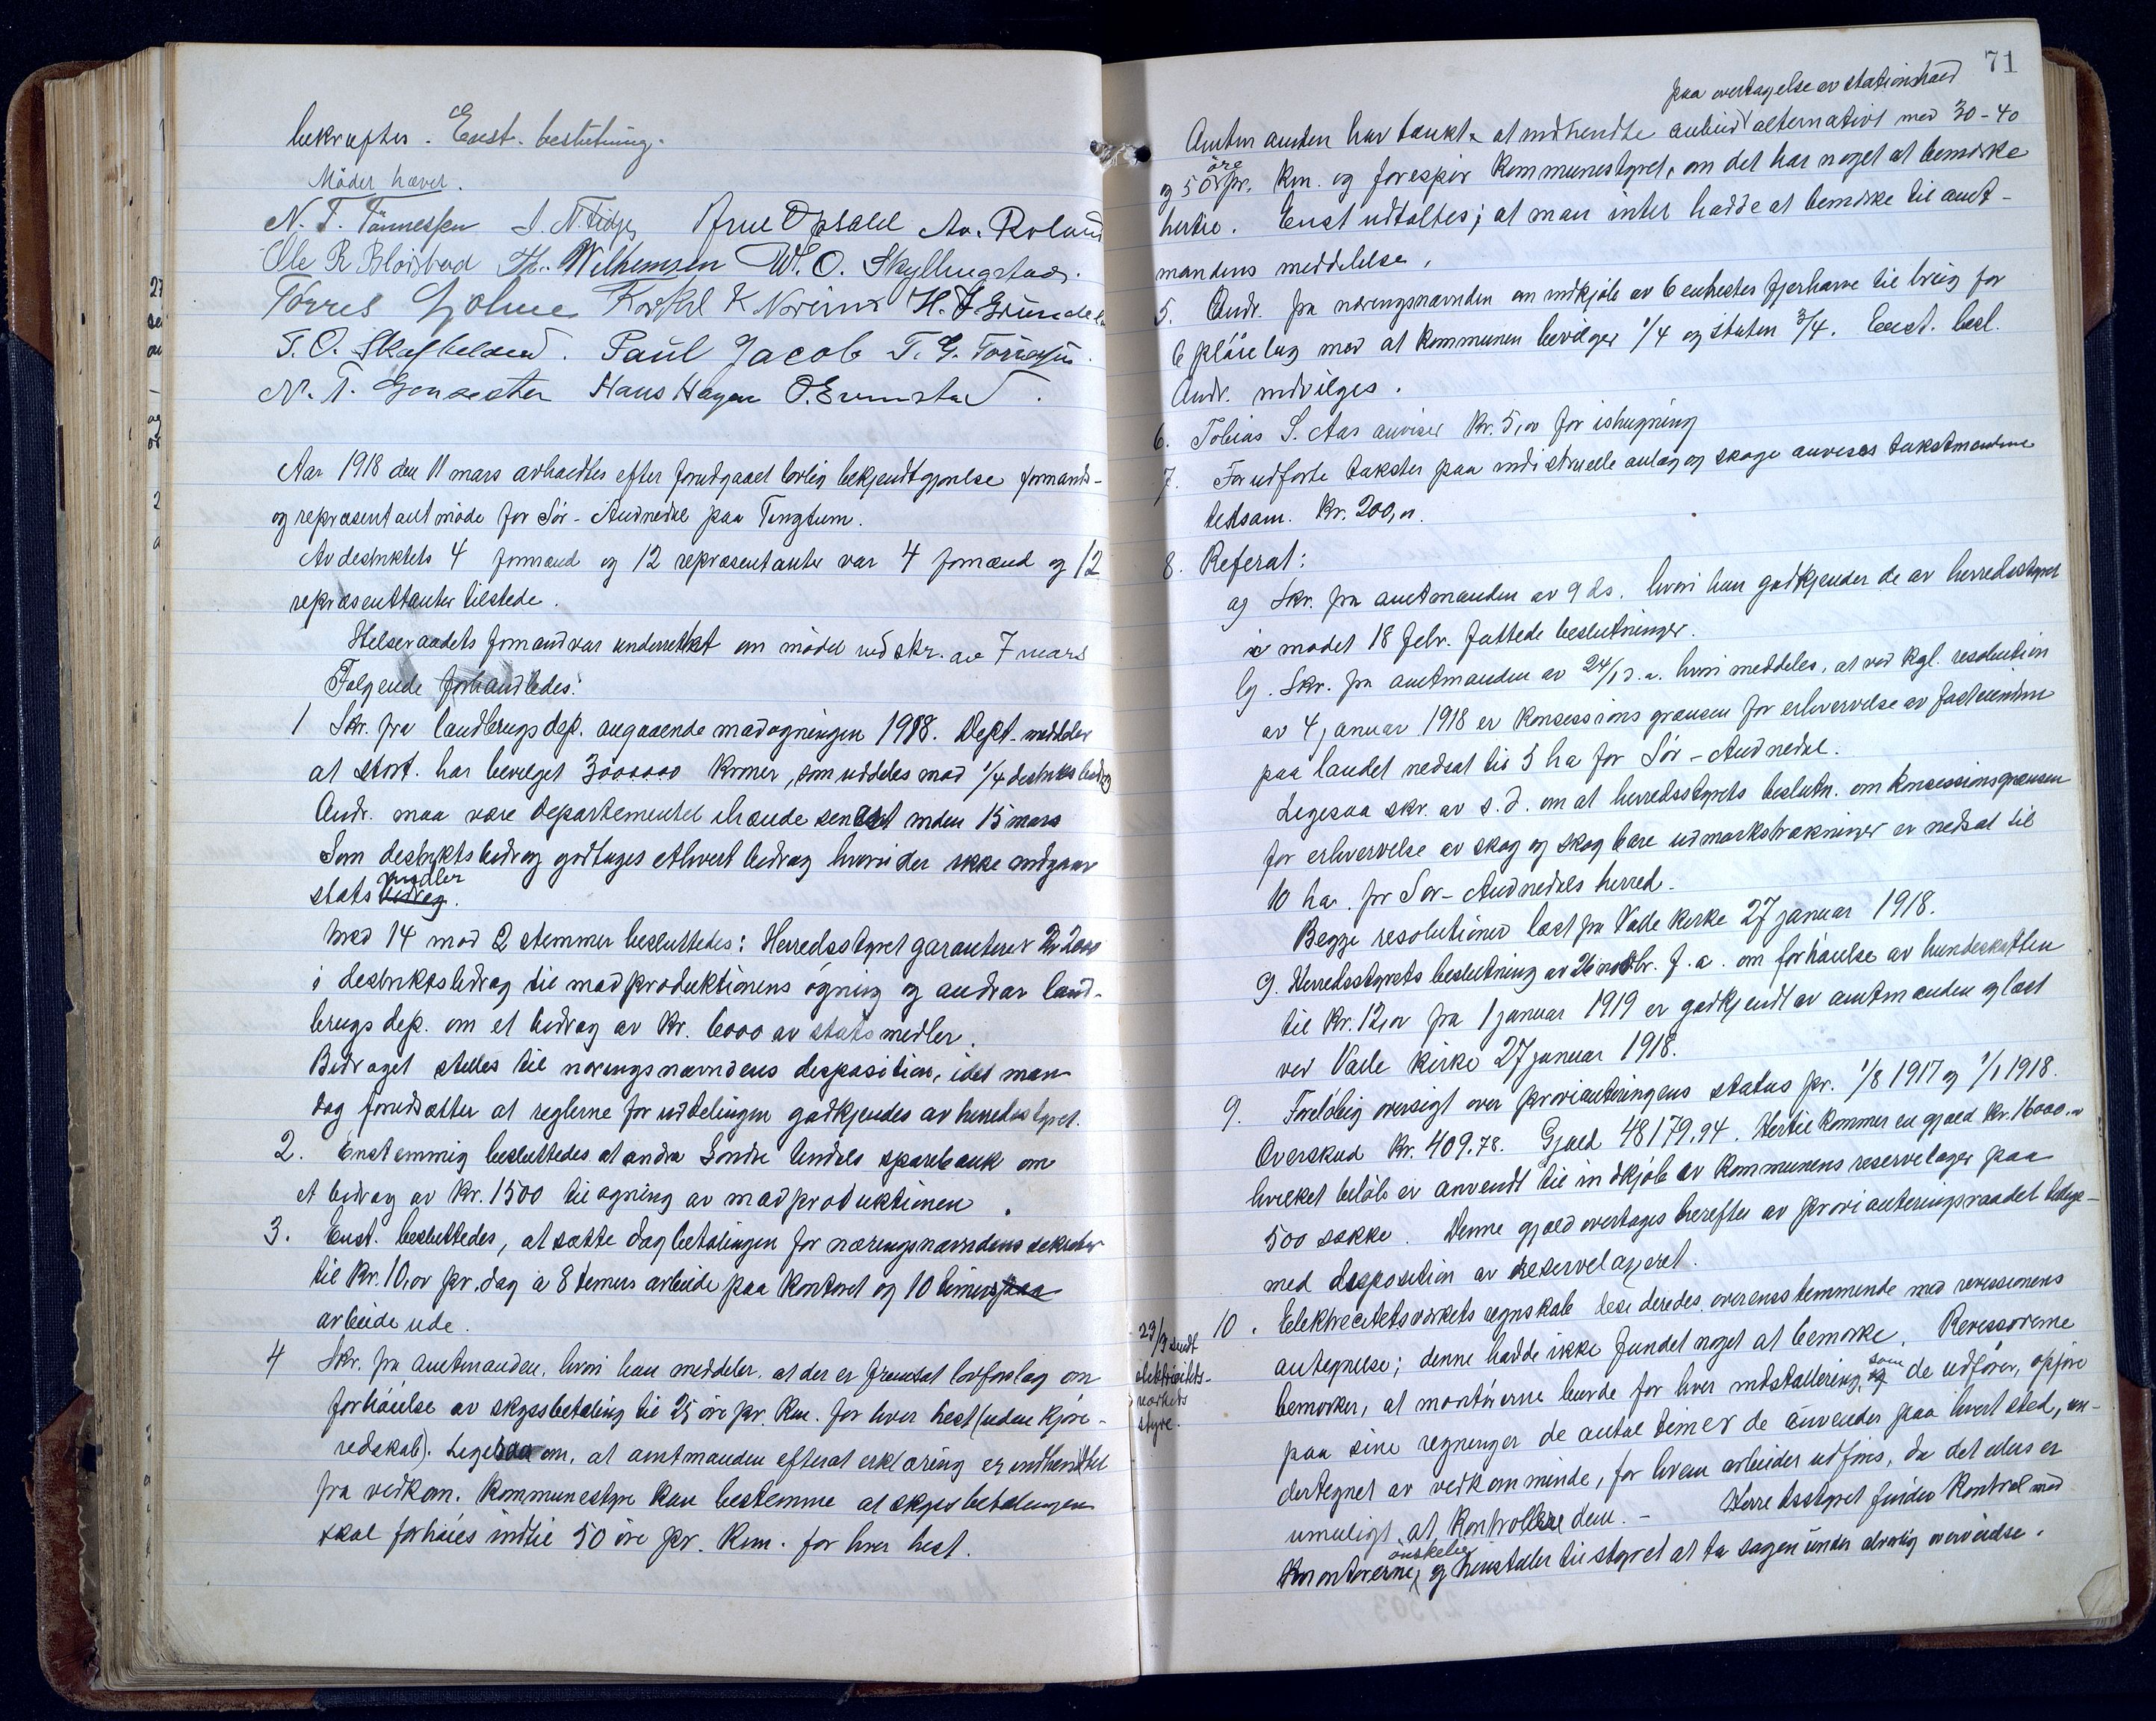 bekræftes. Enst. beslutning.
Mödet hævet.
N. T. Tönnessen S. N. Arne Opsahl Aa. Roland
Ole R Th. Wilhemsen W. O. Skyllingstad.
Törres Holme Torkel K H. J.
T. O. Skaffeland. Paul Jacob T. G. Törresen.
N. T. Hans Hagen O. Evenstad.
Aar 1918 den 11 mars avholdtes efter forudgaaet lovlig bekjendtgjørelse formands-
og repræsentantmöde for Sör-Audnedal paa Tingtun.
Av destriktets 4 formænd og 12 repræsentanter var 4 formænd og 12
repræsentanter tilstede.
Helseraadets formand var underrettet om mödet ved skr. av 7 mars
Følgende forhandledes:
1 Skr. fra landbrugsdep. angaaende madøgningen 1918. Dept. meddeler
at Stort. har bevilget 3000000 kroner, som uddeles mod 1/4 destriktsbidrag
Andr. maa være departementet ihænde senest inden 15 mars
Som destriktsbidrag godtages ethvert bidrag hvori der ikke indgaar
midler
stats bidrag.
Med 14 mod 2 stemmer besluttedes: Herredsstyret garanterer kr 2000
i destriktsbidrag til madproduktionens ögning og andrar land-
brugsdep. om et bidrag av kr. 6000 av statsmidler.
Bidraget stilles til næringsnævndens desposition, idet man
dog forudsætter at reglerne for uddelingen godkjendes av herredsstyret.
2. Enstemmig besluttedes at andra Söndre Undals sparebank om
et bidrag av kr. 1500 til øgning av madproduktionen.
3. Enst. besluttedes, at sætte dagbetalingen for næringsnævndens sekretær
til kr. 10,00 pr. dag a 8 timers arbeide paa kontoret og 10 timers paa
arbeide ude.
4 Skr. fra Amtmanden, hvori han meddeler, at der er fremsat lovforslag om
forhöielse av skydsbetaling til 25 öre pr. Km. for hver hest (uden kjöre-
redskab). Ligesaa om, at amtmanden efterat erklæring er indhentet
fra vedkom. kommunestyre kan bestemme at skydsbetalingen
skal forhöies indtil 50 öre pr. Km. for hver hest.
71
paa overtagelse av stationshold
Amtmanden har tænkt at indhendte anbud alternativt med 30-40
öre
og 50 pr. km. og forespör kommunestyret, om det har noget at bemerke
hertil. Enst udtaltes; at man intet hadde at bemerke til amt-
mandens meddelelse.
5. Andr. fra næringsnævnden om indkjöb av 6 enhestes fjærharve til brug for
6 plöielag mod at kommunen bevilger 1/4 og staten 3/4. Enst. besl.
Andr. indvilges.
6. Tobias S. Aas anvises kr. 5,00 for ishugning
7. For udförte takster paa indistrielle anlæg og skoge anvises takstmændene
tilsam. kr. 200,00.
8. Referat:
a) Skr. fra amtmanden av 9 ds. hvori han godkjender de av herredsstyret
i mødet 18 febr. fattede beslutninger.
b). Skr. fra amtmanden av 24/1 d. a. hvori meddeles, at ved kgl. resolution
av 4 januar 1918 er konsessionsgrænsen for erhvervelse av fast eiendom
paa landet nedsat til 5 ha for Sör-Audnedal.
Ligesaa skr. av s. d. om at herredsstyrets beslutn. om konsessionsgrænsen
for erhvervelse av skog og skogbare udmarkstrækninger er nedsat til
10 ha. for Sör-Audnedals herred.
Begge resolutioner læst fra Valle kirke 27 januar 1918.
9. Herredsstyrets beslutning av 26 novbr. f. a. om forhöielse av hundeskatten
til kr. 12,00 fra 1 januar 1919 er godkjendt av amtmanden og læst
ved Valle kirke 27 januar 1918.
9. Forelöbig oversigt over provianteringens status pr. 1/8 1917 og 1/1 1918.
Overskud kr. 409.78. Gjæld 48179,94. Hertil kommer en gjæld kr. 16000,00
hvilket belöb er anvendt til indkjöb av kommunens reservelager paa
500 sække. Denne gjæld overtages herefter av provianteringsraadet tillige-
med desposition av reservelageret.
10. Elektricitetsverkets regnskab desideredes overensstemmende med revissionens
antegnelse; denne hadde ikke fundet noget at bemerke. Revissorerne
bemerker, at montörerne burde for hver indstallering, som de udförer, opföre
paa sine regninger de antal timer de anvender paa hvert sted, un-
dertegnet av vedkommende, for hvem arbeider udföres, da det ellers er
umuligt at kontrollere dem. - Herredsstyret finder kontrol med
önskelig
montörerne, og henstiller til styret at ta sagen under alvorlig overveielse.
29/9 sendt
elektricitets-
verkets
styre.